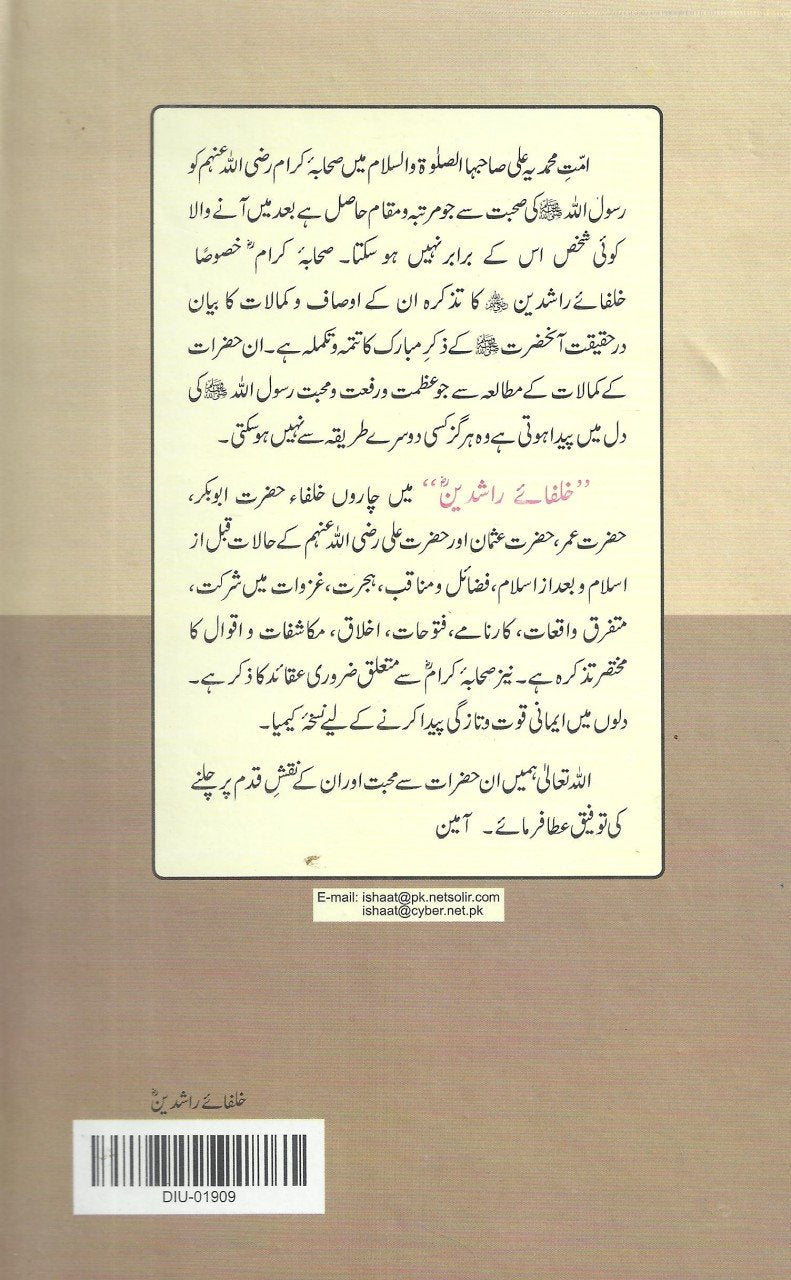 امّتِ محمدیہ علی صاحبہا الصلوٰۃ والسلام میں صحابۂ کرام رضی اللہ عنہم کو
رسول اللہ ﷺ کی صحبت سے جو مرتبہ و مقام حاصل ہے بعد میں آنے والا
کوئی شخص اس کے برابر نہیں ہو سکتا۔ صحابۂ کرامؓ خصوصاً
خلفائے راشدین ؓ کا تذکرہ ان کے اوصاف و کمالات کا بیان
درحقیقت آنحضرت ﷺ کے ذکرِ مبارک کا تتمہ و تکملہ ہے۔ ان حضرات
کے کمالات کے مطالعہ سے جو عظمت و رفعت و محبت رسول اللہ ﷺ کی
دل میں پیدا ہوتی ہے وہ ہرگز کسی دوسرے طریقہ سے نہیں ہو سکتی۔
”خلفائے راشدینؓ“ میں چاروں خلفاء حضرت ابوبکر،
حضرت عمر، حضرت عثمان اور حضرت علی رضی اللہ عنہم کے حالات قبل از
اسلام و بعد از اسلام، فضائل و مناقب، ہجرت، غزوات میں شرکت،
متفرق واقعات، کارنامے، فتوحات، اخلاق، مکاشفات و اقوال کا
مختصر تذکرہ ہے۔ نیز صحابۂ کرامؓ سے متعلق ضروری عقائد کا ذکر ہے۔
دلوں میں ایمانی قوت و تازگی پیدا کرنے کے لیے نسخۂ کیمیا۔
اللہ تعالیٰ ہمیں ان حضرات سے محبت اور ان کے نقشِ قدم پر چلنے
کی توفیق عطا فرمائے۔ آمین
E-mail: ishaat@pk.netsolir.com
ishaat@cyber.net.pk
خلفائے راشدینؓ
DIU-01909